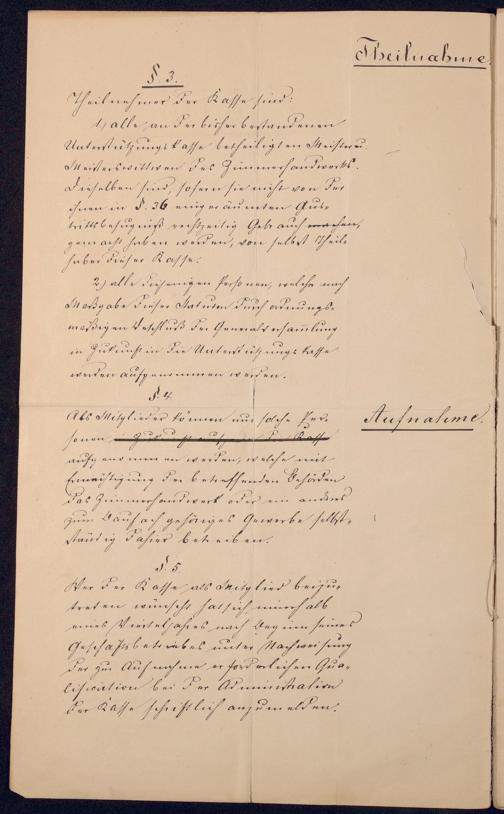 Theilnahme.
§. 3.
Theilnehmer der Kasse sind:
1) alle, an der bisher bestandenen
Unterstützungskasse betheiligten Meister u.
Meisterswittwen des Zimmerhandwerks.
Dieselben sind, sofern sie nicht von der
ihnen in §. 36 eingeräumten Aus-
trittsbefugniß rechtzeitig Gebrauch machen,
gemacht haben werden, von selbst Theil-
haber dieser Kasse.
2) alle diejenigen Personen, welche nach
Maßgabe dieser Statuten durch ordnungs-
mäßigen Beschluß der Generalversammlung
in Zukunft in die Unterstützungskasse
werden aufgenommen werden.
§. 4.
Aufnahme.
Als Mitglieder können nur solche Per-
sonen
aufgenommen werden, welche mit
Ermächtigung der betreffenden Behörden
das Zimmerhandwerk oder ein anderes
zum Baufach gehöriges Gewerbe selbst-
ständig dahier betreiben.
§. 5.
Wer der Kasse als Mitglied beizu-
treten wünscht hat sich innerhalb
eines Vierteljahres nach Beginn seines
Geschäftsbetriebes unter Nachweisung
der zur Aufnahme erforderlichen Qua-
lification bei der Administration
der Kasse schriftlich anzumelden.